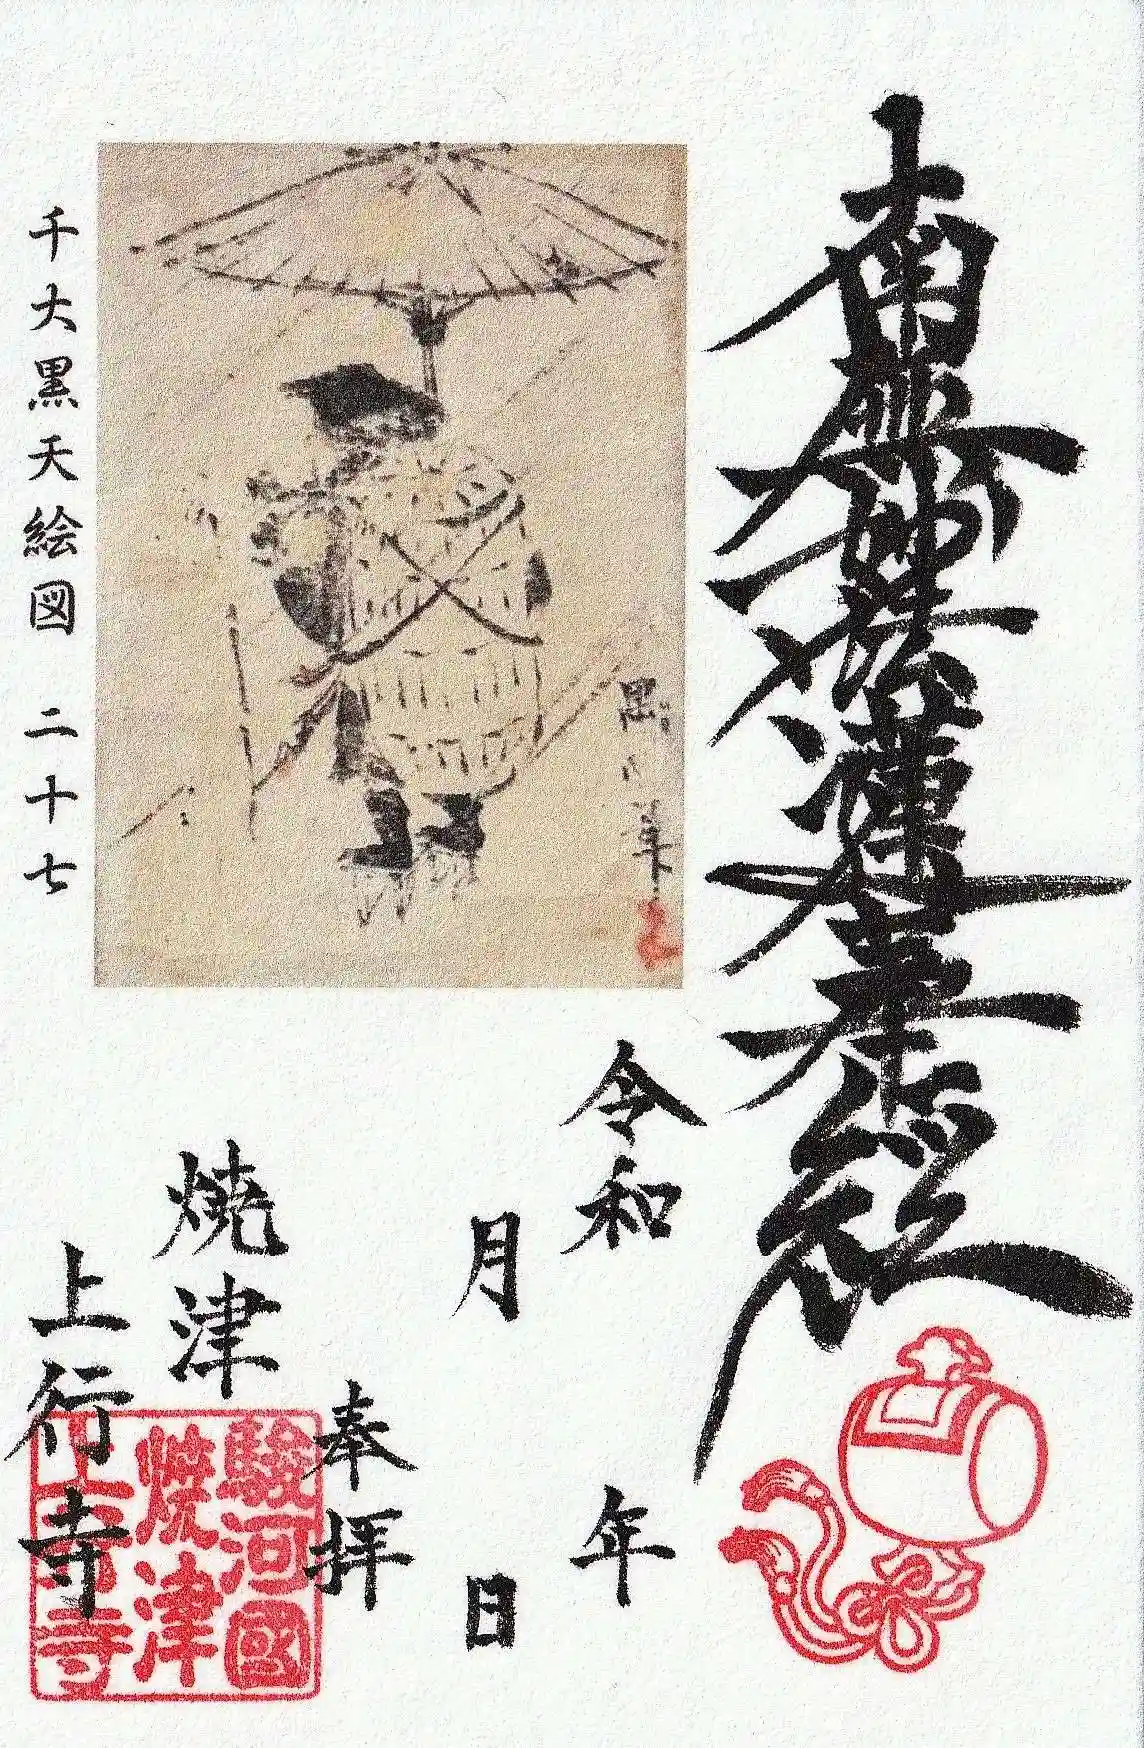 南無妙法蓮華経
千大黒天絵図 二十七
令和 年
月 日
奉拝
焼津
上行寺
駿河國
焼津
上行寺